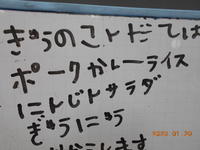 きゅうのこんだては
ポークカレーライス
にんじんサラダ
ぎゅうにゅう
します
2020.01.20